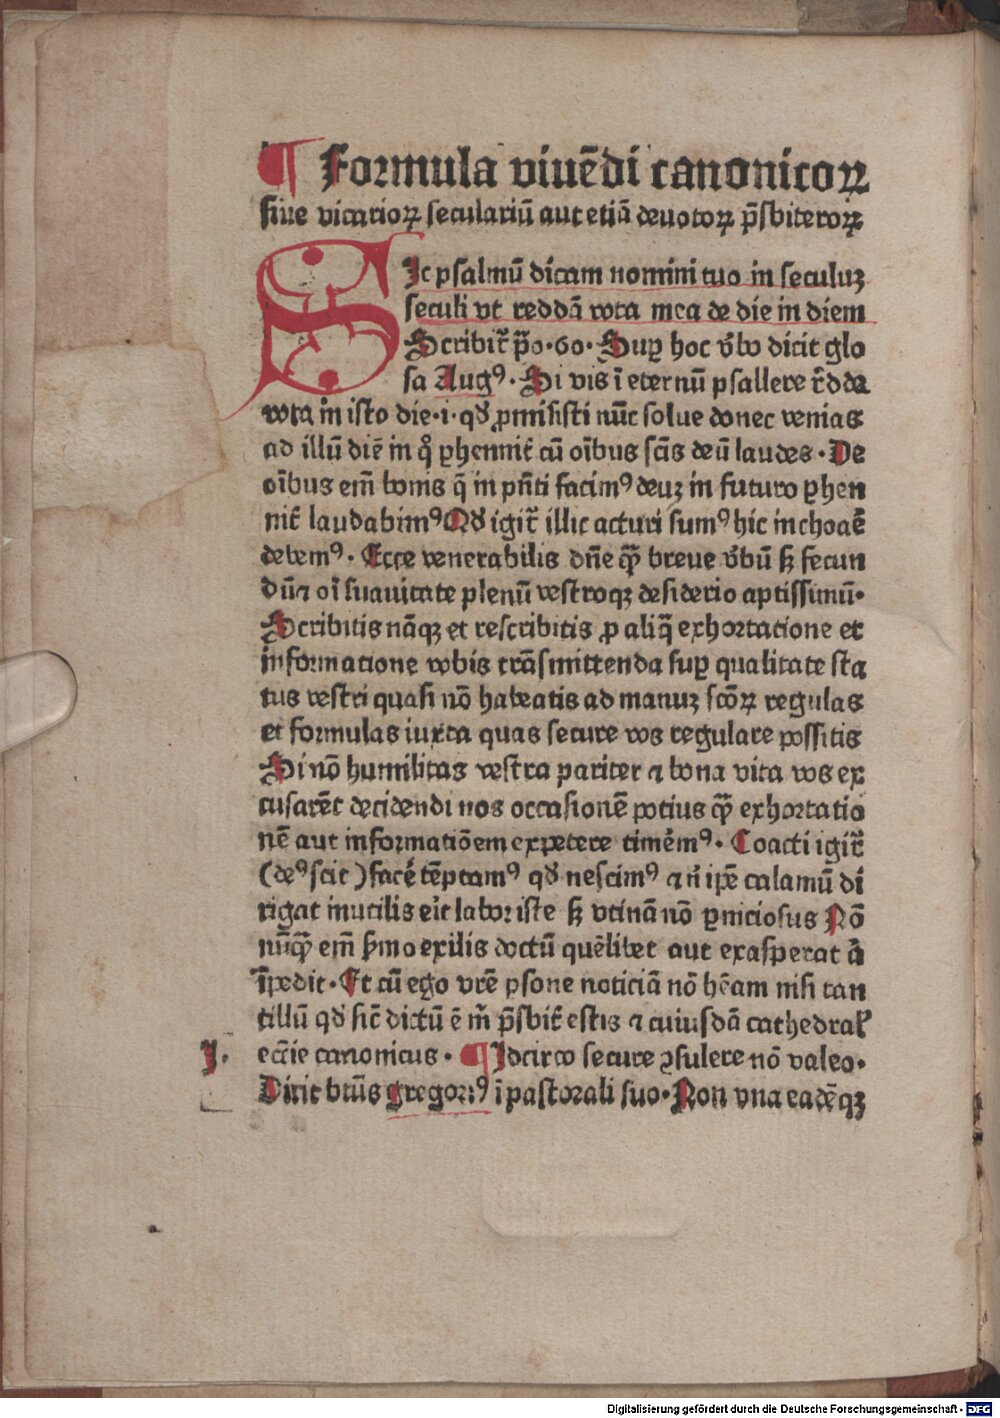 ¶ Formula viuēdi canonicoꝝ
siue vicarioꝝ seculariū aut etiā deuotoꝝ p̄sbiteroꝝ
SIc psalmū dicam nomini tuo in seculuꝫ
seculi vt reddā vota mea de die in diem
Scribit᷑ p̄o·60· Suꝑ hoc v̄bo dicit glo
sa Augꝰ· Si vis ī eternū psallere r̄dde
vota in isto die·i·qd̄ ꝓmisisti nūc solue donec venias
ad illū diē in q̊ ꝑhennit̄ cū oībus scīs deū laudes· De
oībus em̄ bonis q̄ in pn̄ti facimꝰ deuꝫ in futuro ꝑhen
nit̄ laudabimꝰ Qd̄ igit᷑ illic acturi sumꝰ hic inchoaē
debemꝰ· Ecce venerabilis dn̄e qꝫ̄ breue v̄bū sꝫ fecun
dū ⁊ oī suauitate plenū vestroqꝫ desiderio aptissimū·
Scribitis nāqꝫ et rescribitis ꝓ aliq̄ exhortacione et
informatione vobis trāsmittenda suꝑ qualitate sta
tus vestri quasi nō habeatis ad manuꝫ scōꝝ regulas
et formulas iuxta quas secure vos regulare possitis
Si nō humilitas vestra pariter ⁊ bona vita vos ex
cusarēt decidendi nos occasionē potius qꝫ̄ exhortatio
nē aut informatiōem expetere timēmꝰ· Coacti igit᷑
(deꝰ scit) facē tēptamꝰ qd̄ nescimꝰ ⁊ n̄ ip̄e calamū di
rigat inutilis eīt labor iste sꝫ vtinā nō ꝑniciosus Nō
nūqꝫ̄ em̄ s̄mo exilis doctū quēlibet aut exasperat aū
īpedit· Et cū ego vr̄e ꝑsone noticiā nō hēam nisi tan
tillū qd̄ sic̄ dictū ē m̄ p̄sbit̄ estis ⁊ cuiusdā cathedral̄
I· eccīe canonicus· ¶ Idcirco secure ꝯsulere nō valeo·
Dicit btūs gregoriꝰ ī pastorali suo· Non vna eadēqꝫ
Digitalisierung gefördert durch die Deutsche Forschungsgemeinschaft - DFG